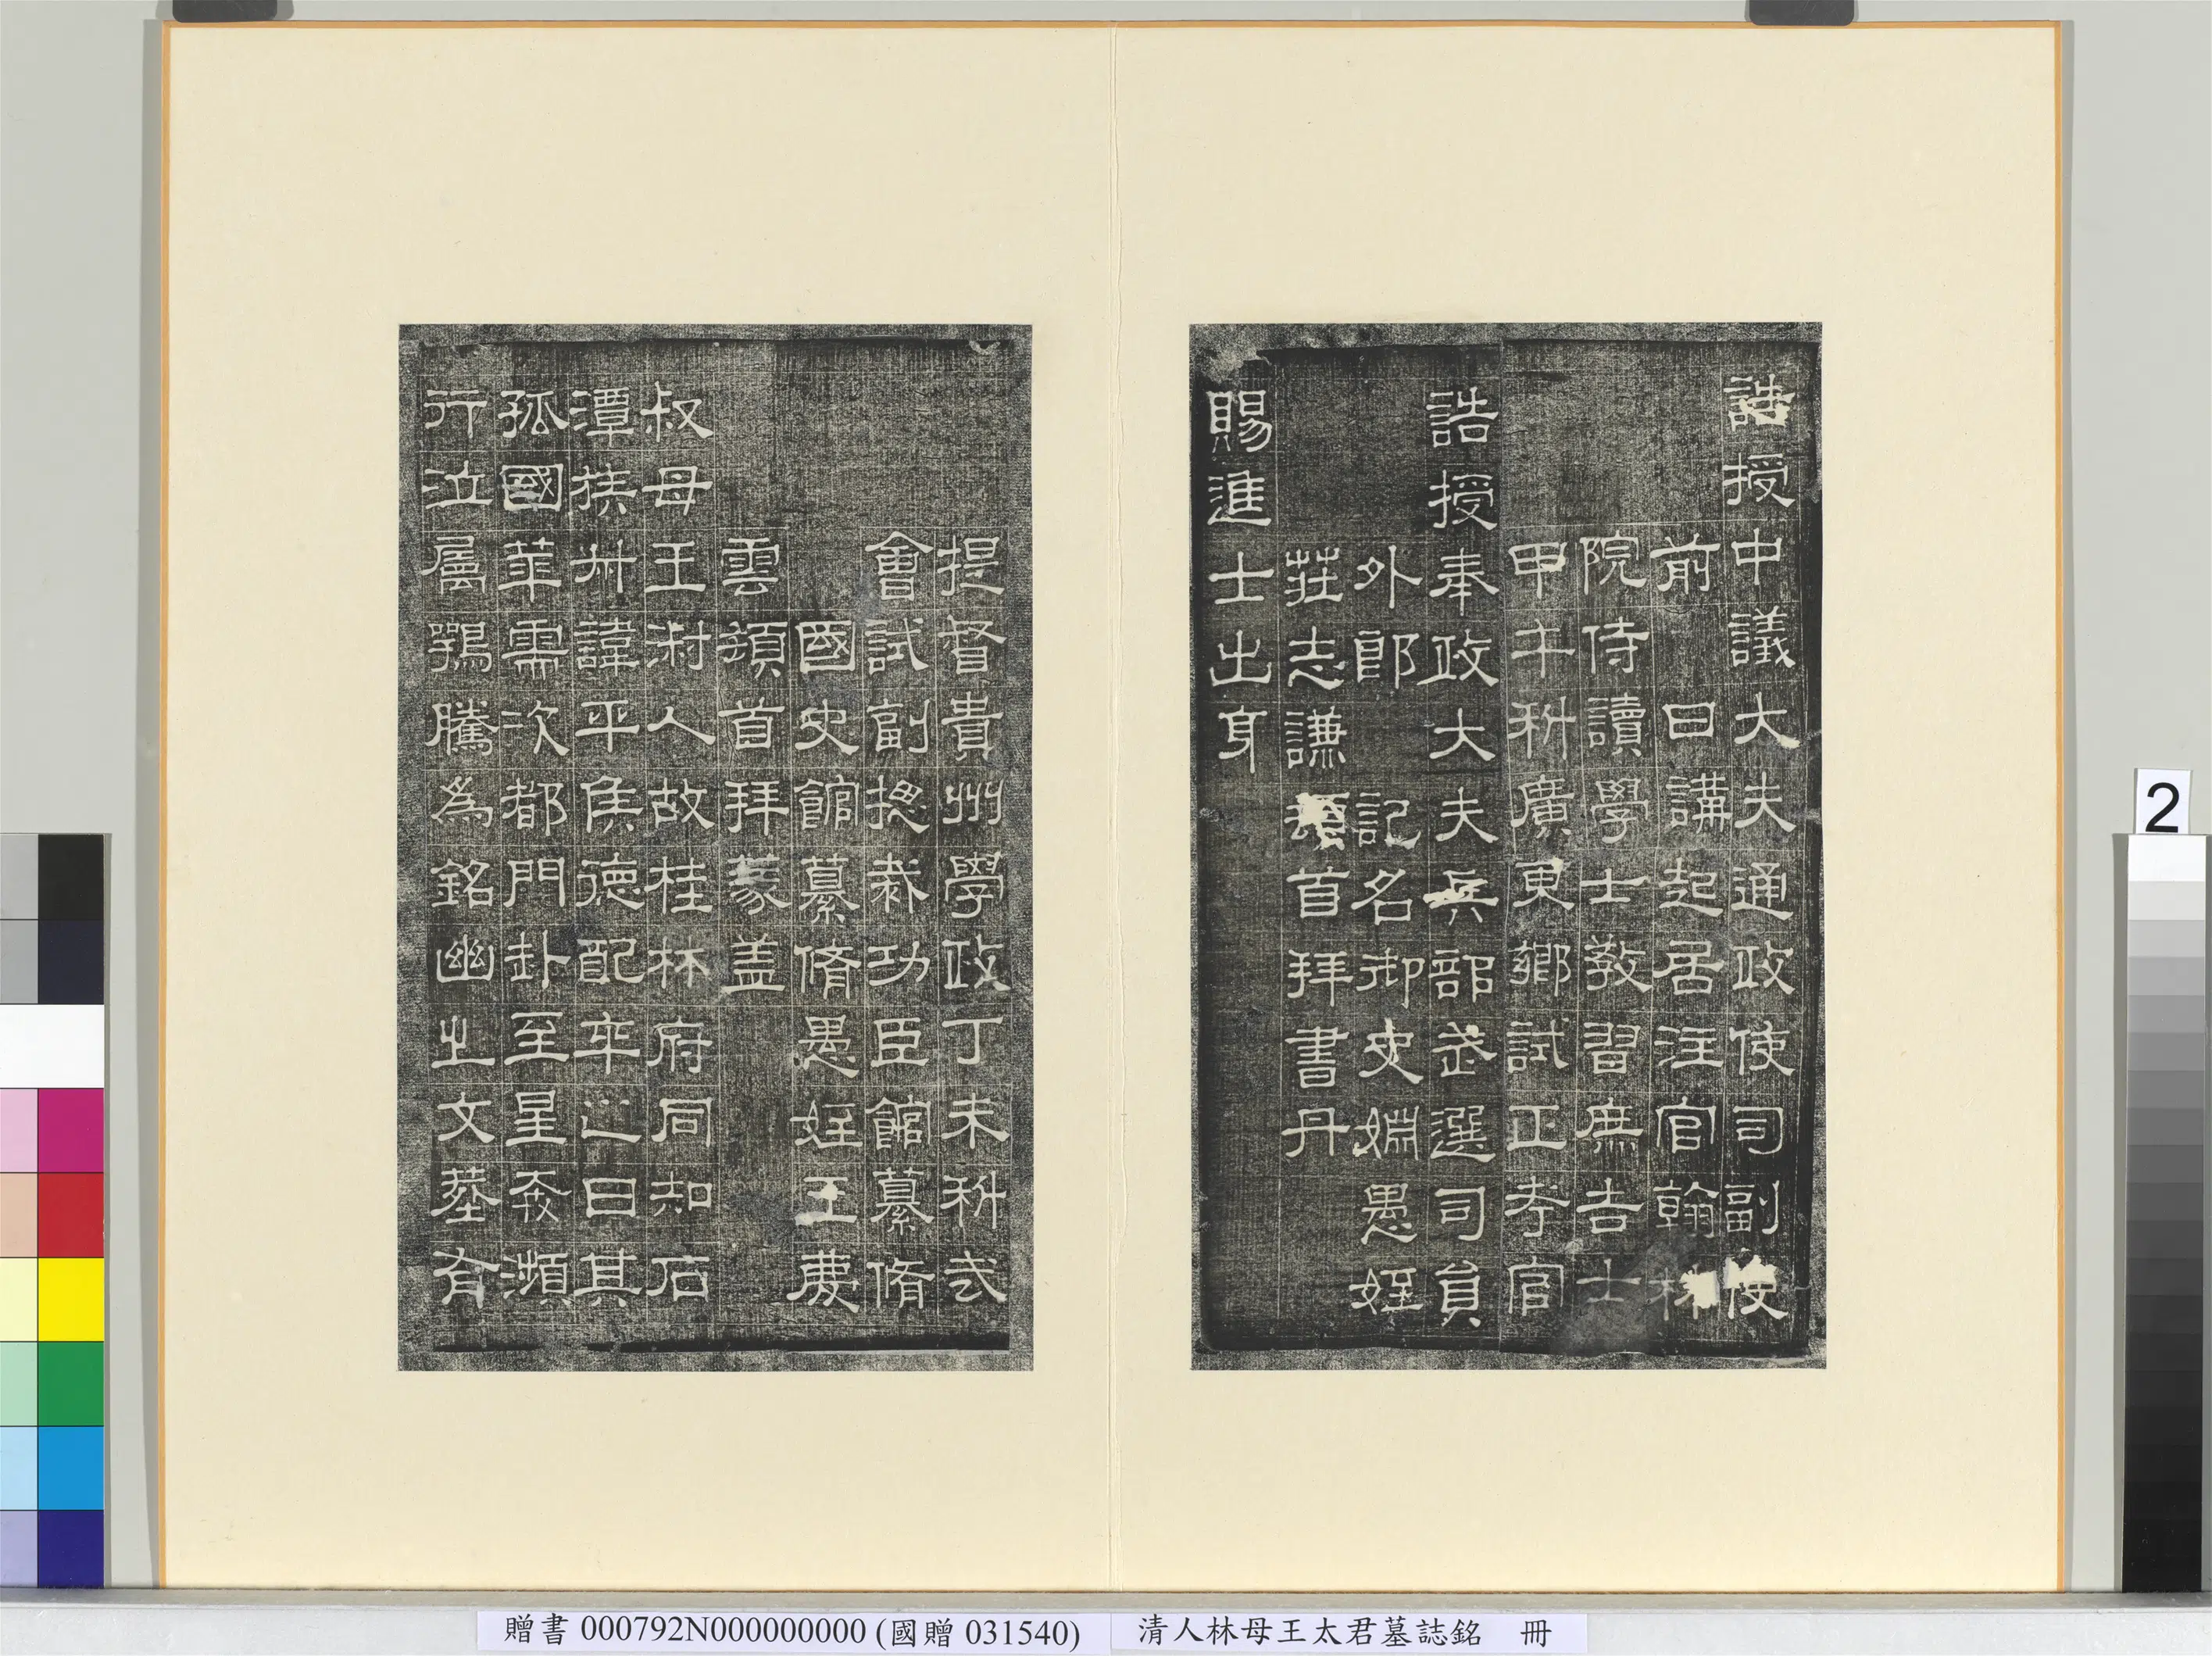 誥授中議大夫通政使司副使
前 日講起居注官翰林
院侍讀學士教習庶吉士
甲午科廣東鄉試正考官
誥授奉政大夫兵部武選司員
外郎 記名御史姻愚姪
莊志謙頓首拜書丹
賜進士出身
提督貴州學政丁未科武
會試副揔裁功臣館纂脩
國史館纂脩愚姪王慶
雲頓首拜篆盖
叔母王淑人故桂林府同知石
潭族叔諱平侯德配卒之日其
孤國華需次都門訃至星奔瀕
行泣屬鶚騰為銘幽之文葬有
2
贈書 000792N000000000 (國贈 031540)
清人林母王太君墓誌銘 冊